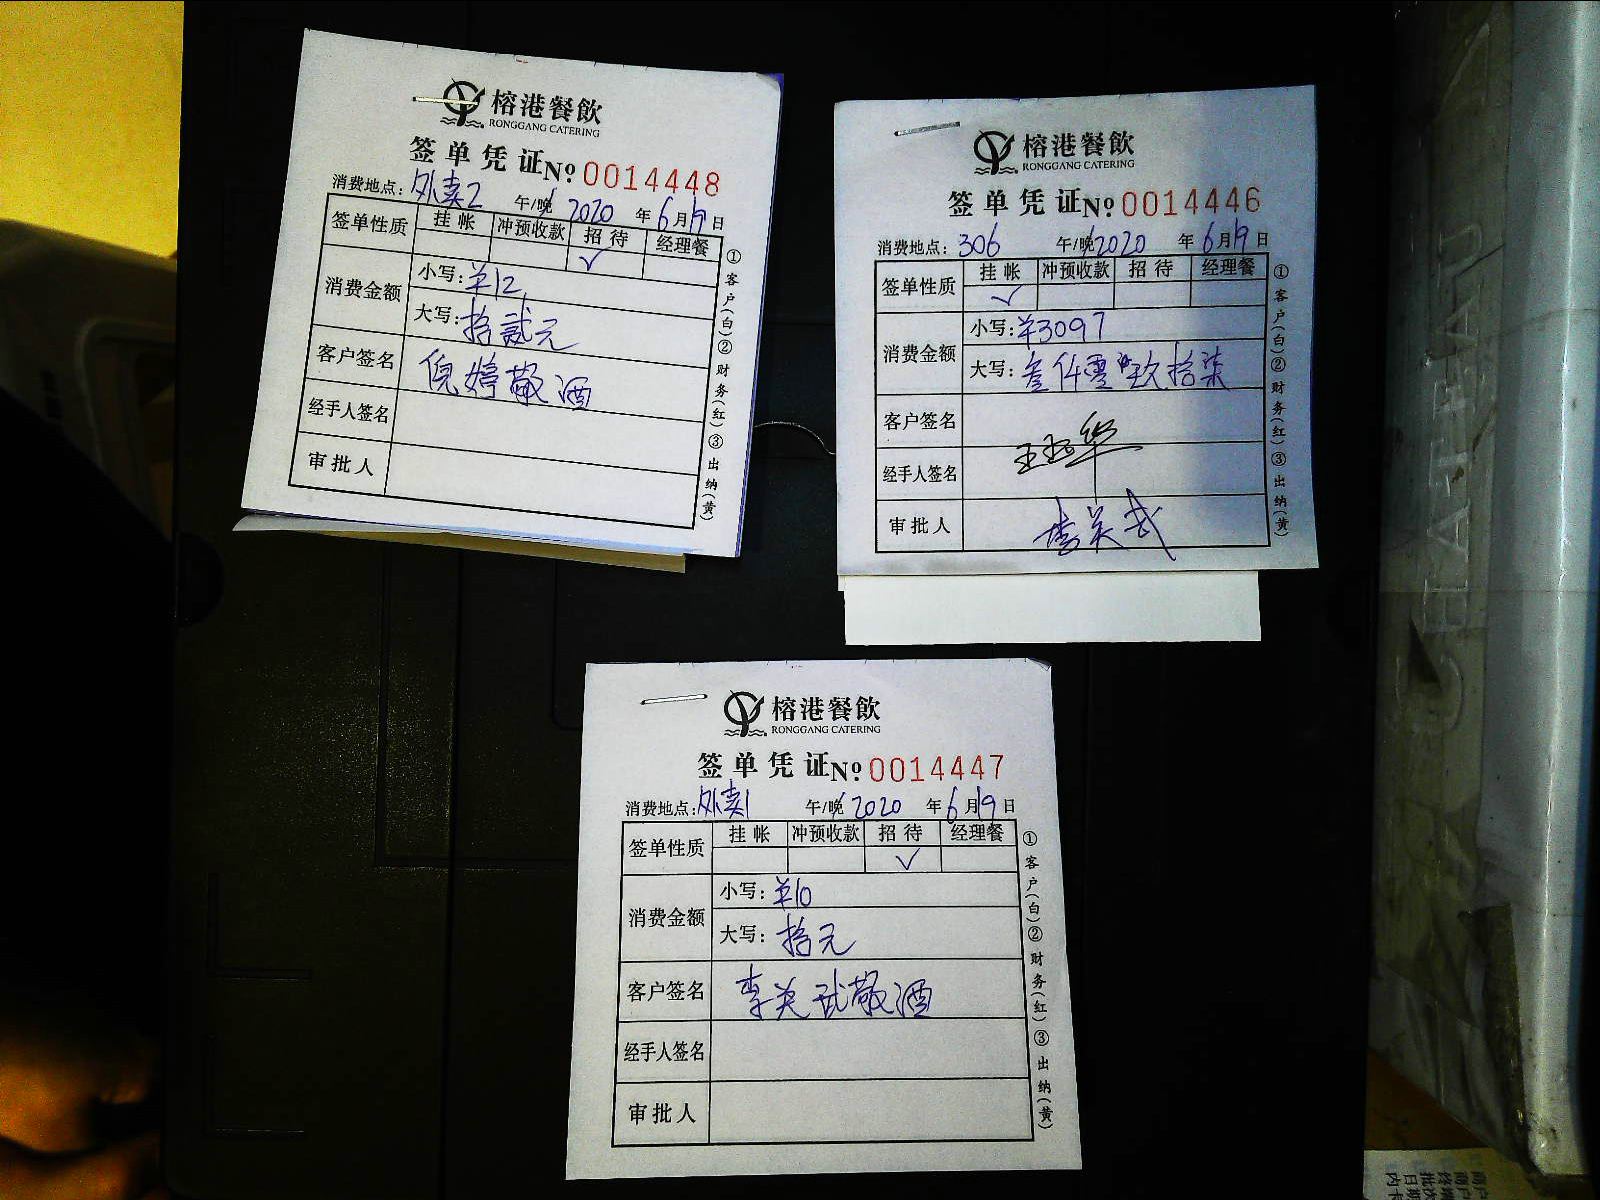 榕港餐飲
RONGGANG CATERING
签单凭证 Nº 0014448
消费地点: 外卖2 午/晚 2020 年 6 月 19 日
签单性质 挂帐 冲预收款 招待 经理餐
√
消费金额 小写: ¥12
大写: 拾贰元
客户签名 倪婷敬酒
经手人签名
审批人
①客户(白)②财务(红)③出纳(黄)
榕港餐飲
RONGGANG CATERING
签单凭证 Nº 0014446
消费地点: 306 午/晚 2020 年 6 月 19 日
签单性质 挂帐 冲预收款 招待 经理餐
√
消费金额 小写: ¥3097
大写: 叁仟零玖拾柒
客户签名
经手人签名
审批人 李关武
①客户(白)②财务(红)③出纳(黄)
榕港餐飲
RONGGANG CATERING
签单凭证 Nº 0014447
消费地点: 外卖1 午/晚 2020 年 6 月 19 日
签单性质 挂帐 冲预收款 招待 经理餐
√
消费金额 小写: ¥10
大写: 拾元
客户签名 李关武敬酒
经手人签名
审批人
①客户(白)②财务(红)③出纳(黄)